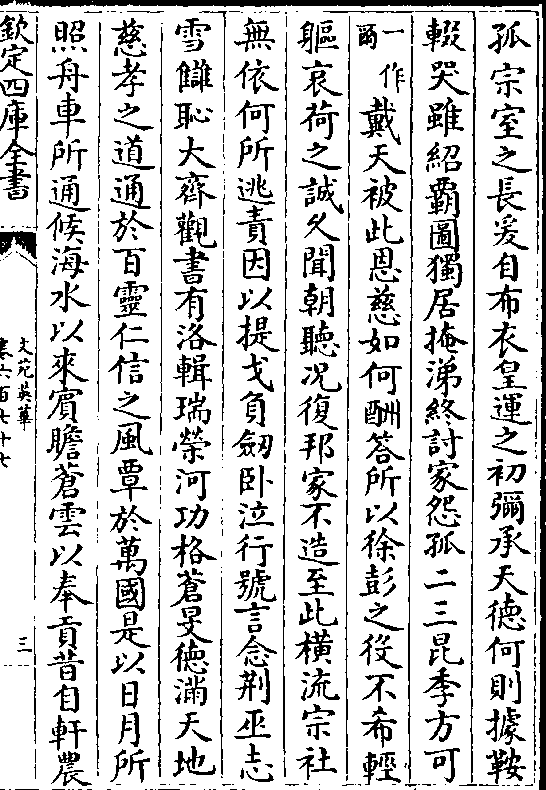 孤宗室之長爰自布衣皇運之初彌承天德何則據鞍
輟哭雖紹霸圖獨居掩涕終討家怨孤二三昆季方可
一作
酾
戴天被此恩慈如何酬答所以徐彭之役不希輕
軀哀荷之誠久聞朝聽况復邦家不造至此橫流宗社
無依何所逃責因以提戈負劒卧泣行號言念荆巫志
雪讎恥大齊觀書有洛輯瑞榮河功格蒼旻德滿天地
慈孝之道通於百靈仁信之風覃於萬國是以日月所
照舟車所通候海水以來賓瞻蒼雲以奉貢昔自軒農
欽定四庫全書
文苑英華
卷六百七十七
三